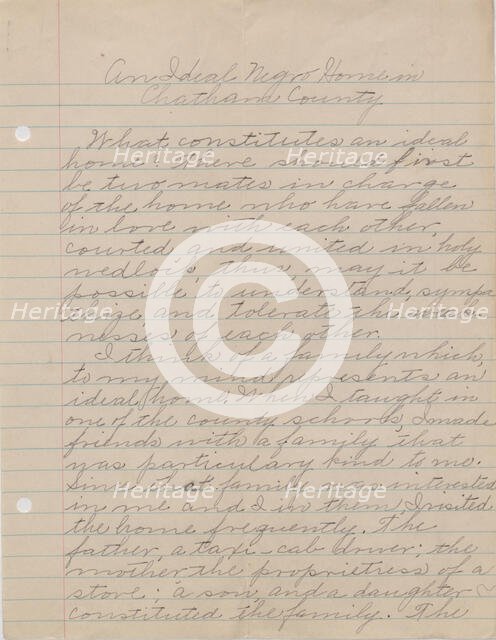 An Ideal Negro Home in
Chatham County
What constitutes an ideal
home? There should first
be two mates in charge
of the home who have fallen
in love with each other,
courted and united in holy
wedlock, thus, may it be
possible to understand, sympa
thize and tolerate the weak
nesses of each other.
I think of a family which,
to my mind represents an
ideal home. When I taught in
one of the county schools, I made
friends with a family that
was particulary kind to me.
Since that family was interested
in me and I in them, I visited
the home frequently. The
father, a taxi-cab driver; the
mother the proprietress of a
store; a son, and a daughter
constituted the family. The
Heritage
Heritage
Heritage
Heritage
Heritage
Heritage
Heritage
Heritage
©